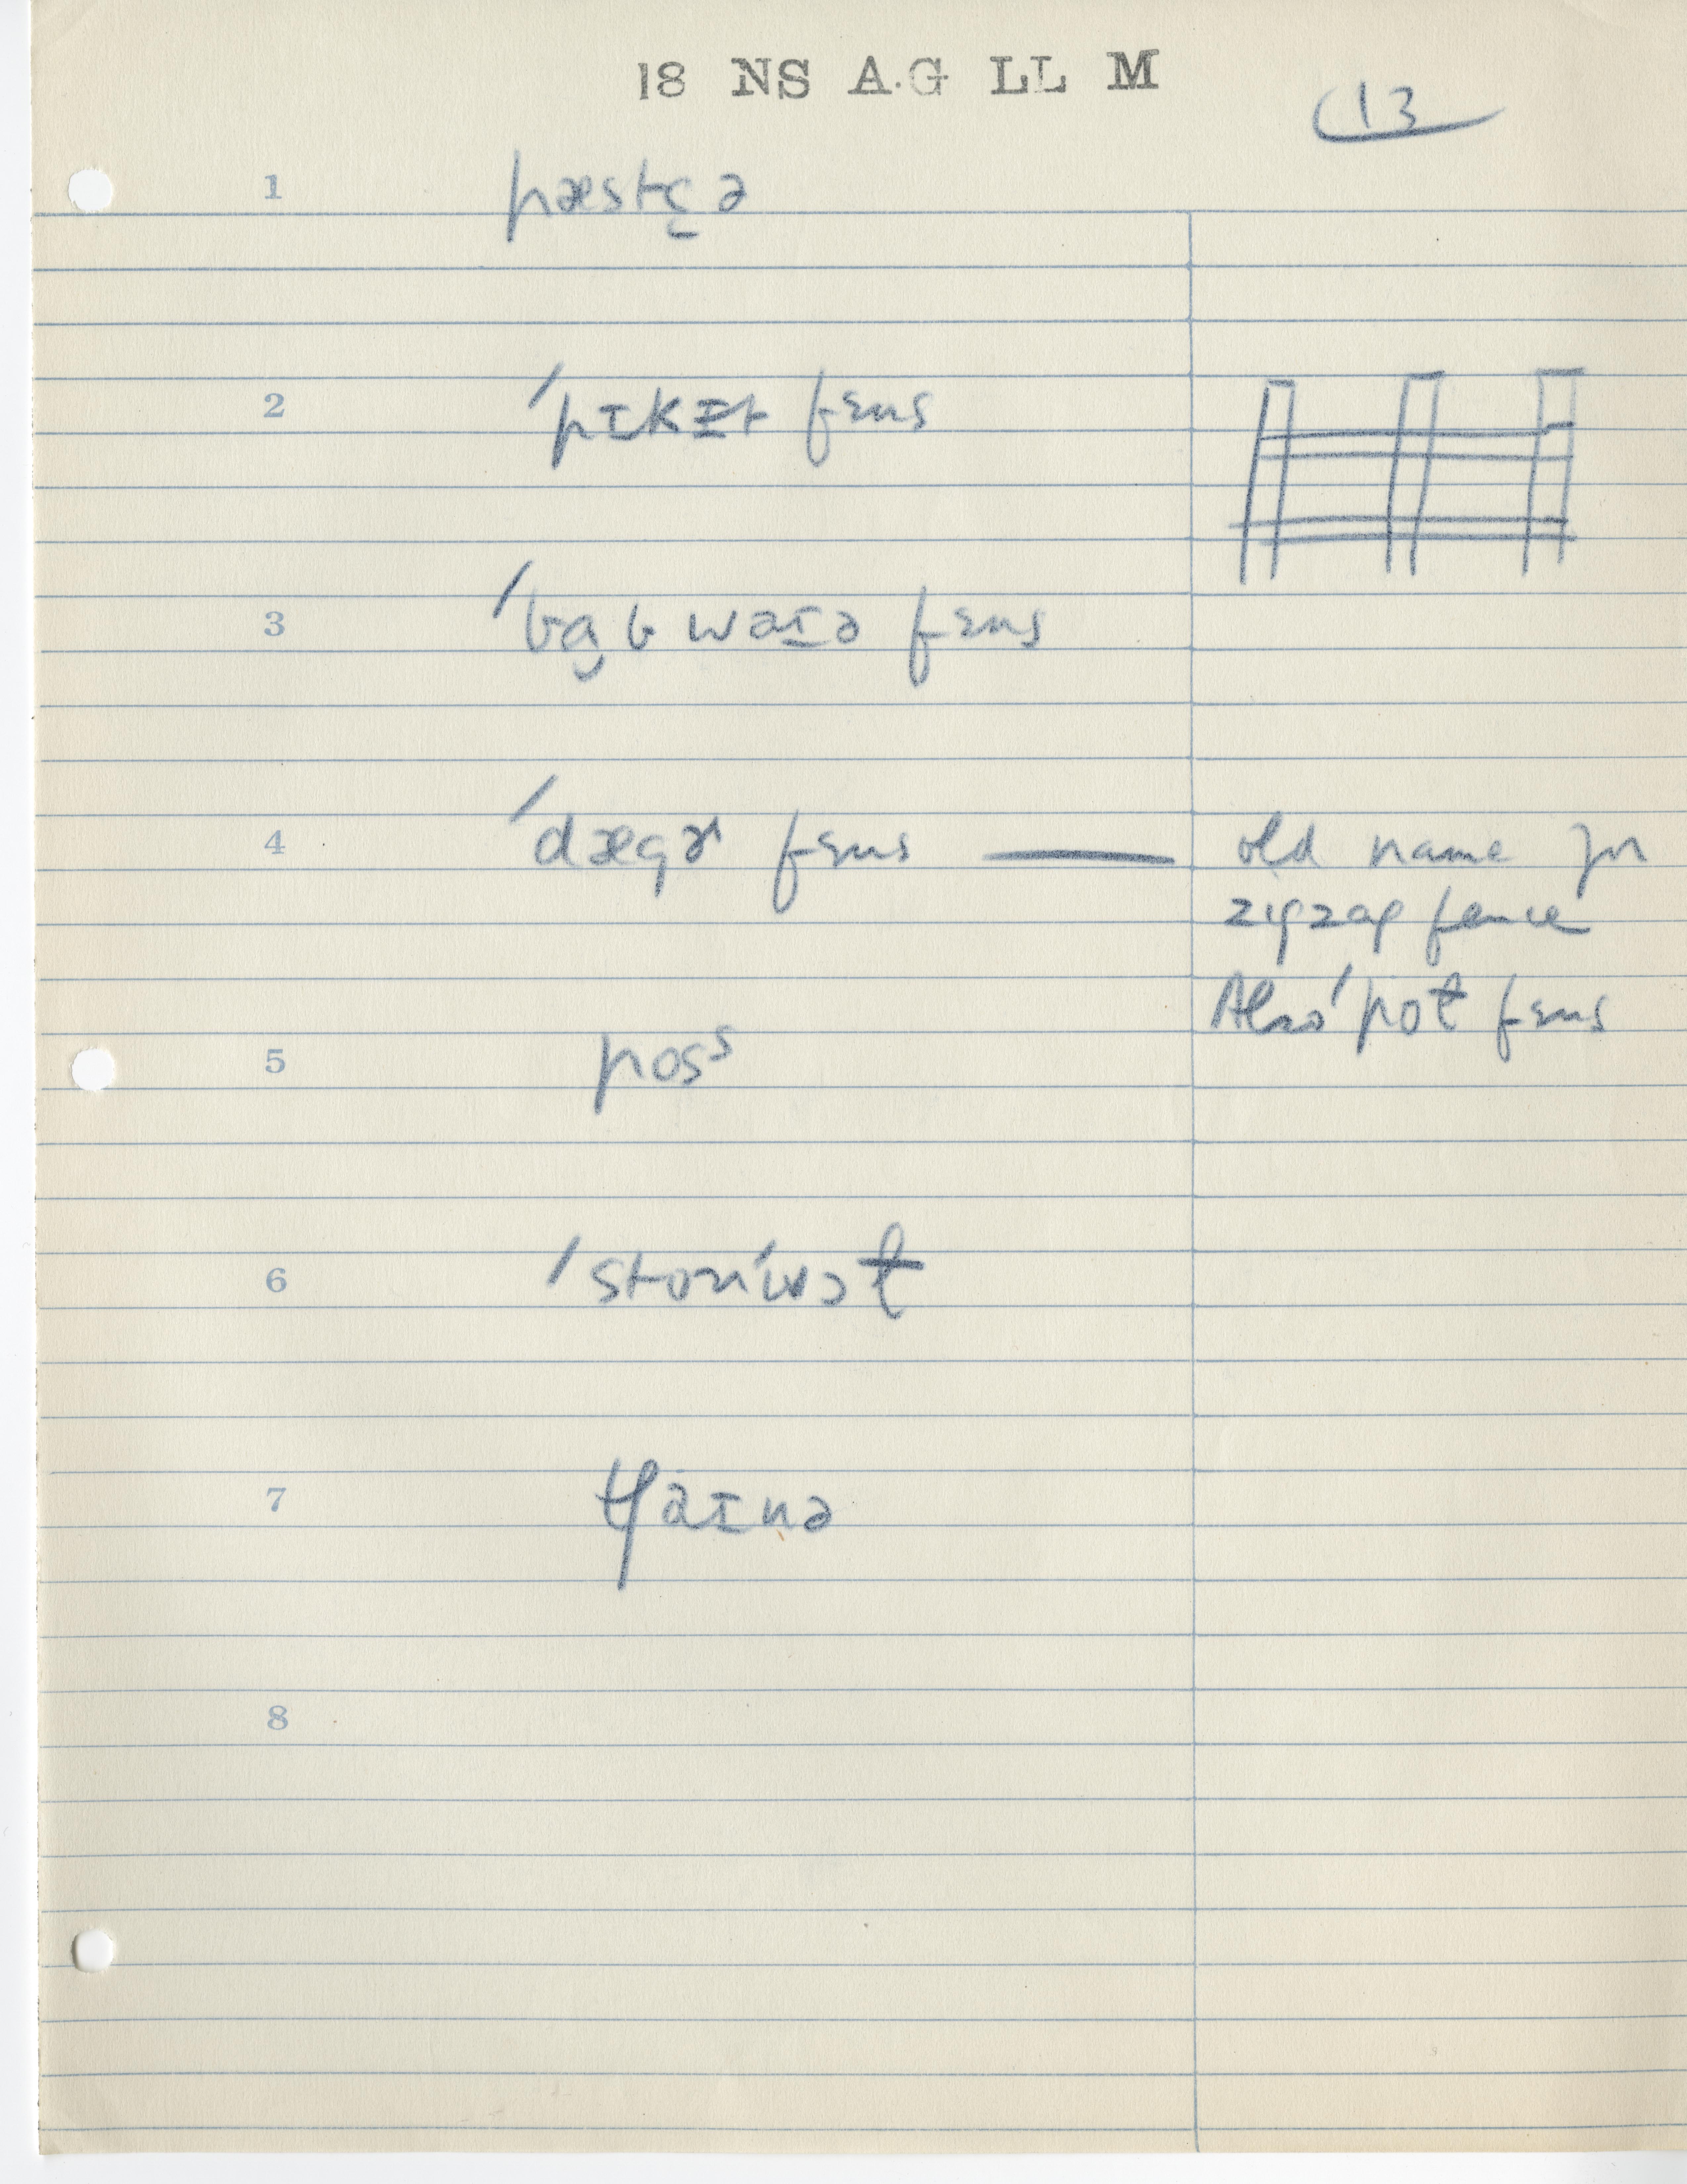 18 NS A.G LL M
13
1 pæstʃ̬ə
2 ˈpɪkɪ̵t fɛns
3 ˈbɑ̬b waɪə fɛns
4 ˈdægɚ fɛns — old name for
zigzag fence
Also ˈpoƚ fɛns
5 posˢ
6 ˈstonˈwɔƚ
7 tʃaɪnə
8